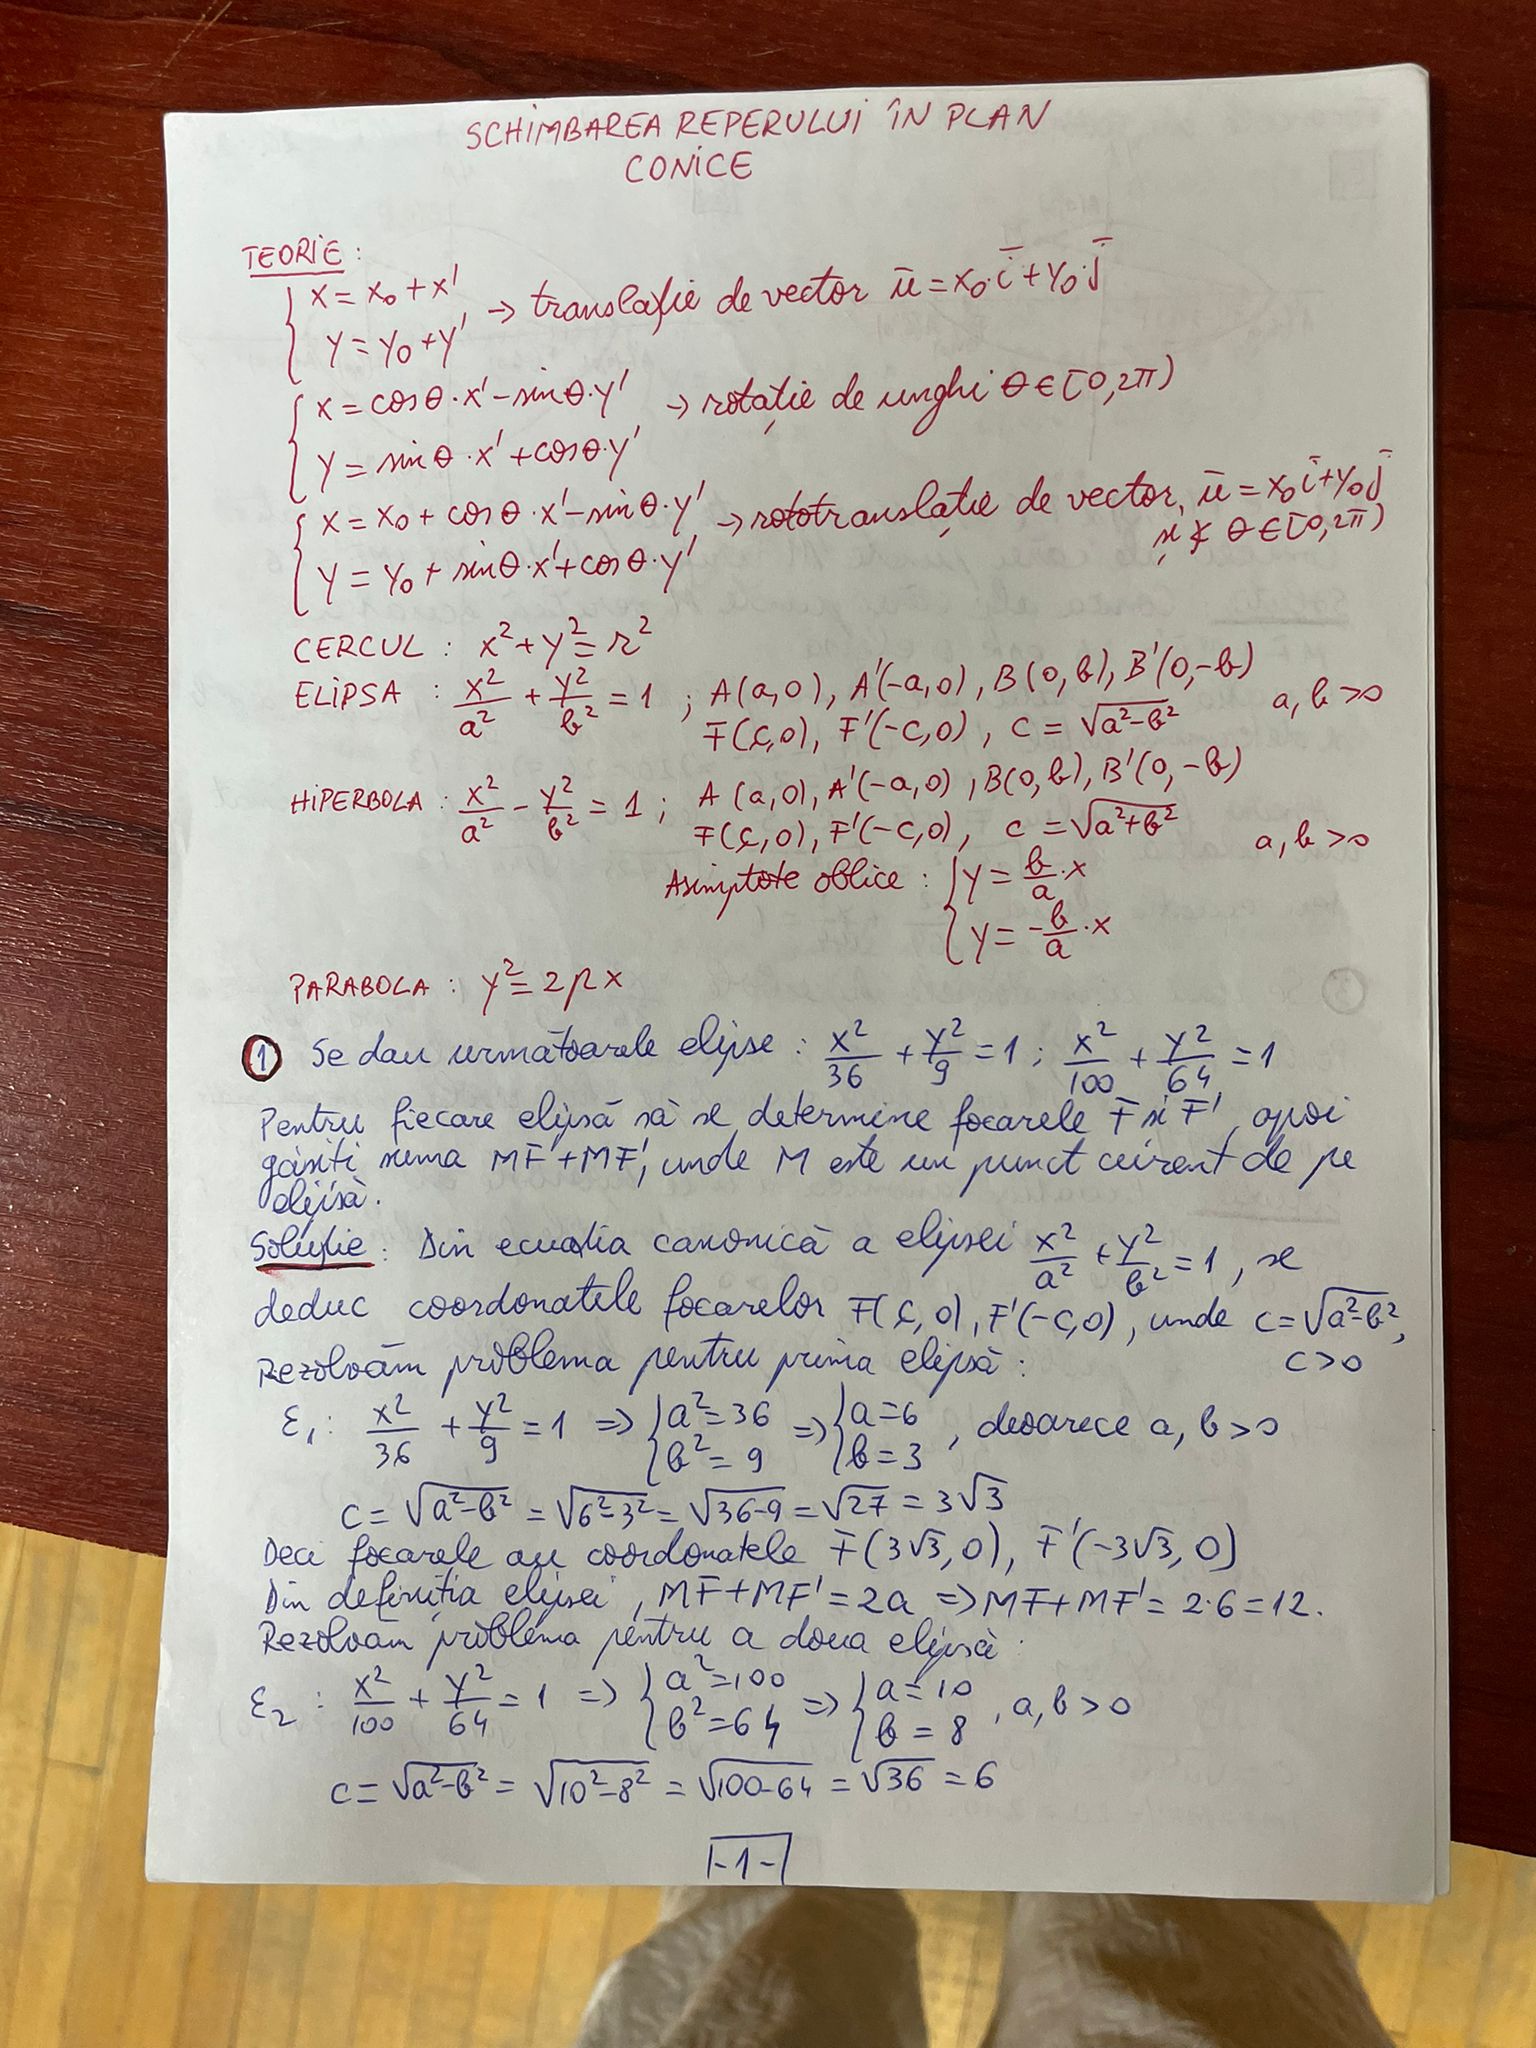 SCHIMBAREA REPERULUI ÎN PLAN
CONICE
TEORIE:
{ x = x₀ + x'
{ y = y₀ + y' → translație de vector ū = x₀·ī + y₀·j̄
{ x = cosθ·x' − sinθ·y' → rotație de unghi θ ∈ [0, 2π)
{ y = sinθ·x' + cosθ·y'
{ x = x₀ + cosθ·x' − sinθ·y' → rototranslație de vector ū = x₀ī + y₀j̄
{ y = y₀ + sinθ·x' + cosθ·y' și ∢ θ ∈ [0, 2π)
CERCUL : x² + y² = r²
ELIPSA : x²/a² + y²/b² = 1 ; A(a,0), A'(−a,0), B(0,b), B'(0,−b)
F(c,0), F'(−c,0), c = √(a²−b²) a, b > 0
HIPERBOLA : x²/a² − y²/b² = 1 ; A(a,0), A'(−a,0), B(0,b), B'(0,−b)
F(c,0), F'(−c,0), c = √(a²+b²) a, b > 0
Asimptote oblice : { y = b/a · x
{ y = −b/a · x
PARABOLA : y² = 2px
① Se dau următoarele elipse : x²/36 + y²/9 = 1 ; x²/100 + y²/64 = 1
Pentru fiecare elipsă să se determine focarele F și F', apoi
găsiți suma MF + MF', unde M este un punct curent de pe
elipsă.
Soluție : Din ecuația canonică a elipsei x²/a² + y²/b² = 1, se
deduc coordonatele focarelor F(c,0), F'(−c,0), unde c = √(a²−b²),
c > 0
Rezolvăm problema pentru prima elipsă :
ε₁ : x²/36 + y²/9 = 1 ⇒ { a² = 36 { b² = 9 ⇒ { a = 6 { b = 3 , deoarece a, b > 0
c = √(a²−b²) = √(6²−3²) = √(36−9) = √27 = 3√3
Deci focarele au coordonatele F(3√3, 0), F'(−3√3, 0)
Din definiția elipsei, MF + MF' = 2a ⇒ MF + MF' = 2·6 = 12.
Rezolvăm problema pentru a doua elipsă :
ε₂ : x²/100 + y²/64 = 1 ⇒ { a² = 100 { b² = 64 ⇒ { a = 10 { b = 8 , a, b > 0
c = √(a²−b²) = √(10²−8²) = √(100−64) = √36 = 6
-1-